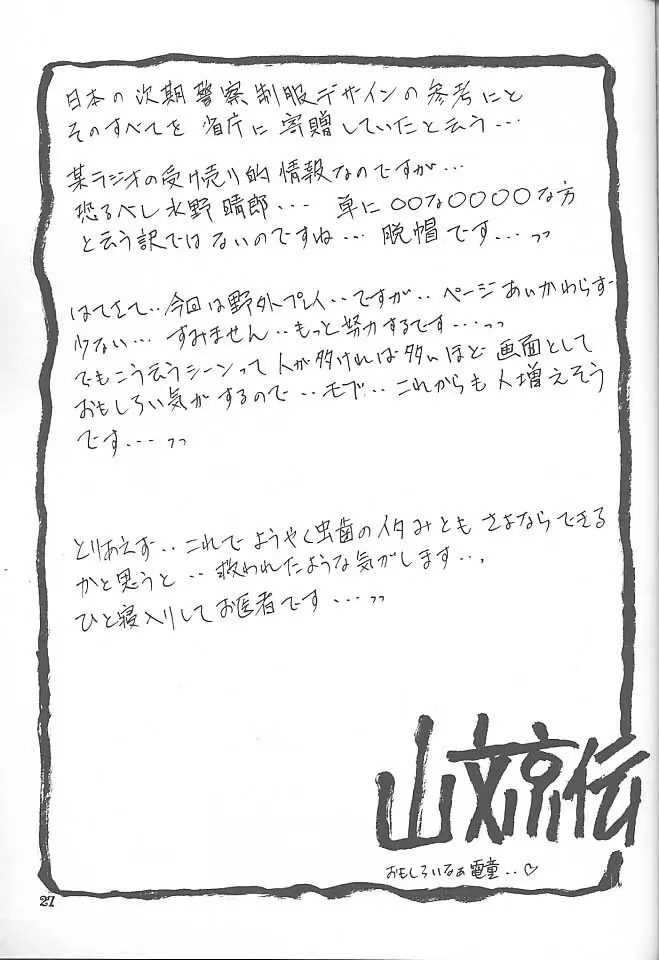 日本の次期警察制服デザインの参考にと
そのすべてを省庁に寄贈していたと云う…
某ラジオの受け売り的情報なのですが…
恐るべし水野晴郎... 単に○○な○○○○な方
と云う訳ではないのですね… 脱帽です…っっ
はてさて‥今回は野外プレイ‥ですが‥ページあいかわらず
少ない… すみません‥もっと努力するです…っっ
でもこう云うシーンって人が多ければ多いほど画面として
おもしろい気がするので‥モブ‥これからも人増えそう
です…っっ
とりあえず‥これでようやく虫歯のイタみともさよならできる
かと思うと‥救われたような気がします…。
ひと寝入りしてお医者です…っっ
山文京伝
おもしろいなぁ電童‥♡
27